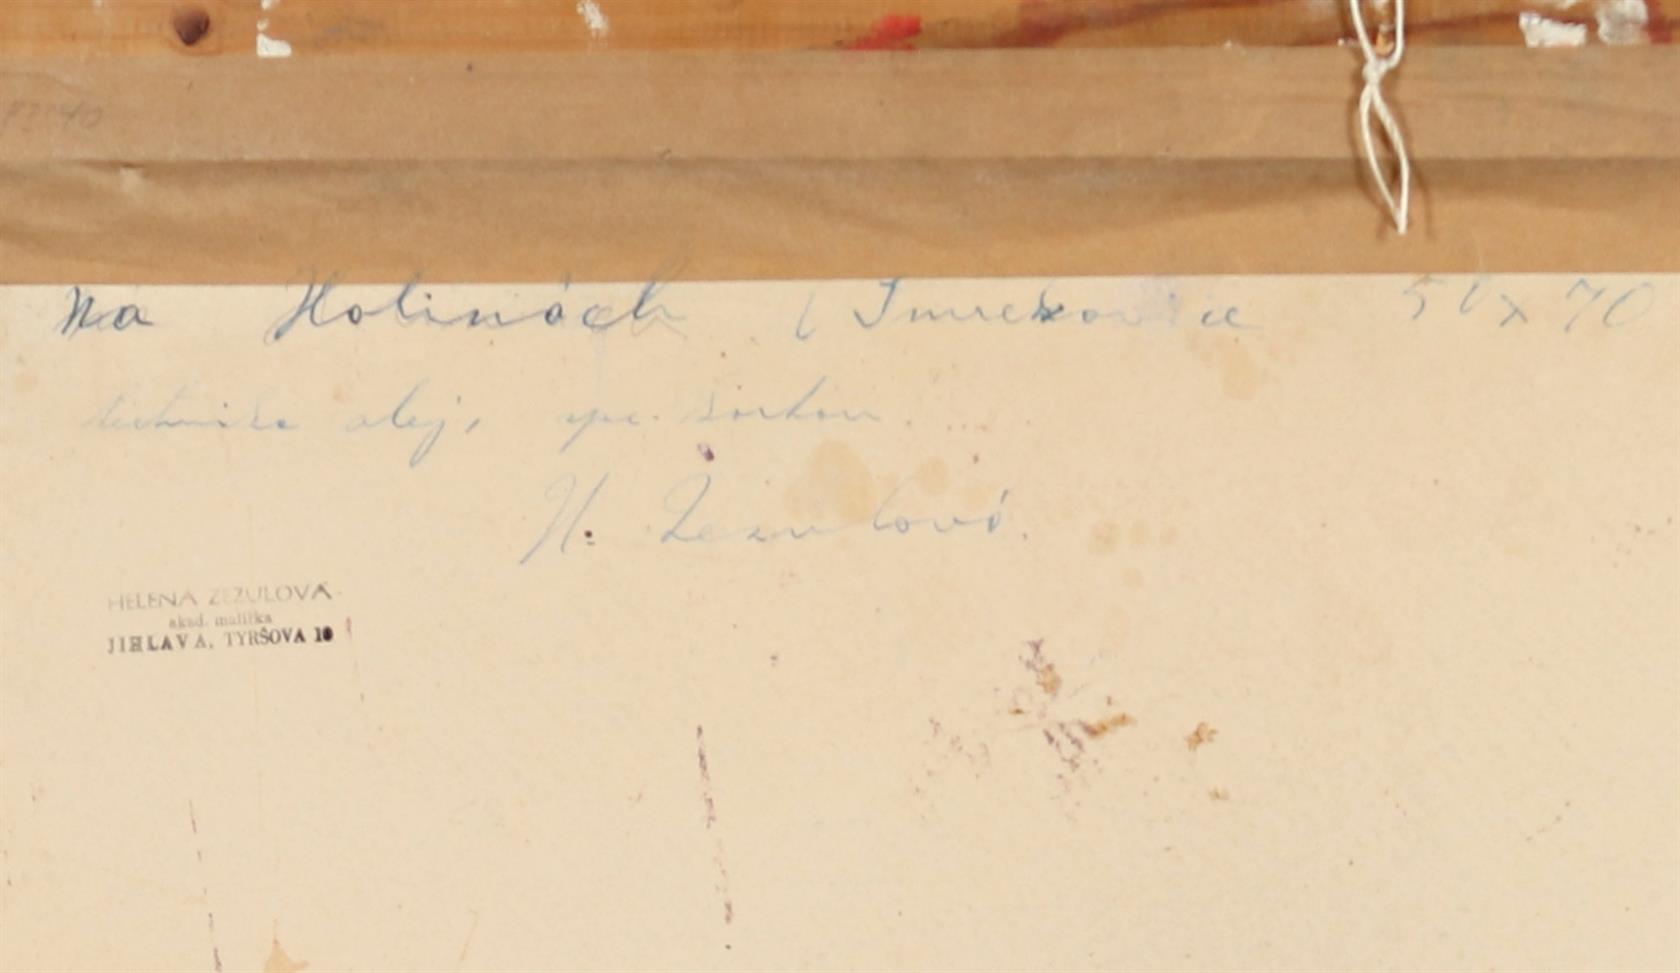 Na Holinách (Smrckovice 50 x 70
technika olej,
H. Zezulová.
HELENA ZEZULOVÁ
akad. malířka
JIHLAVA, TYRŠOVA 10